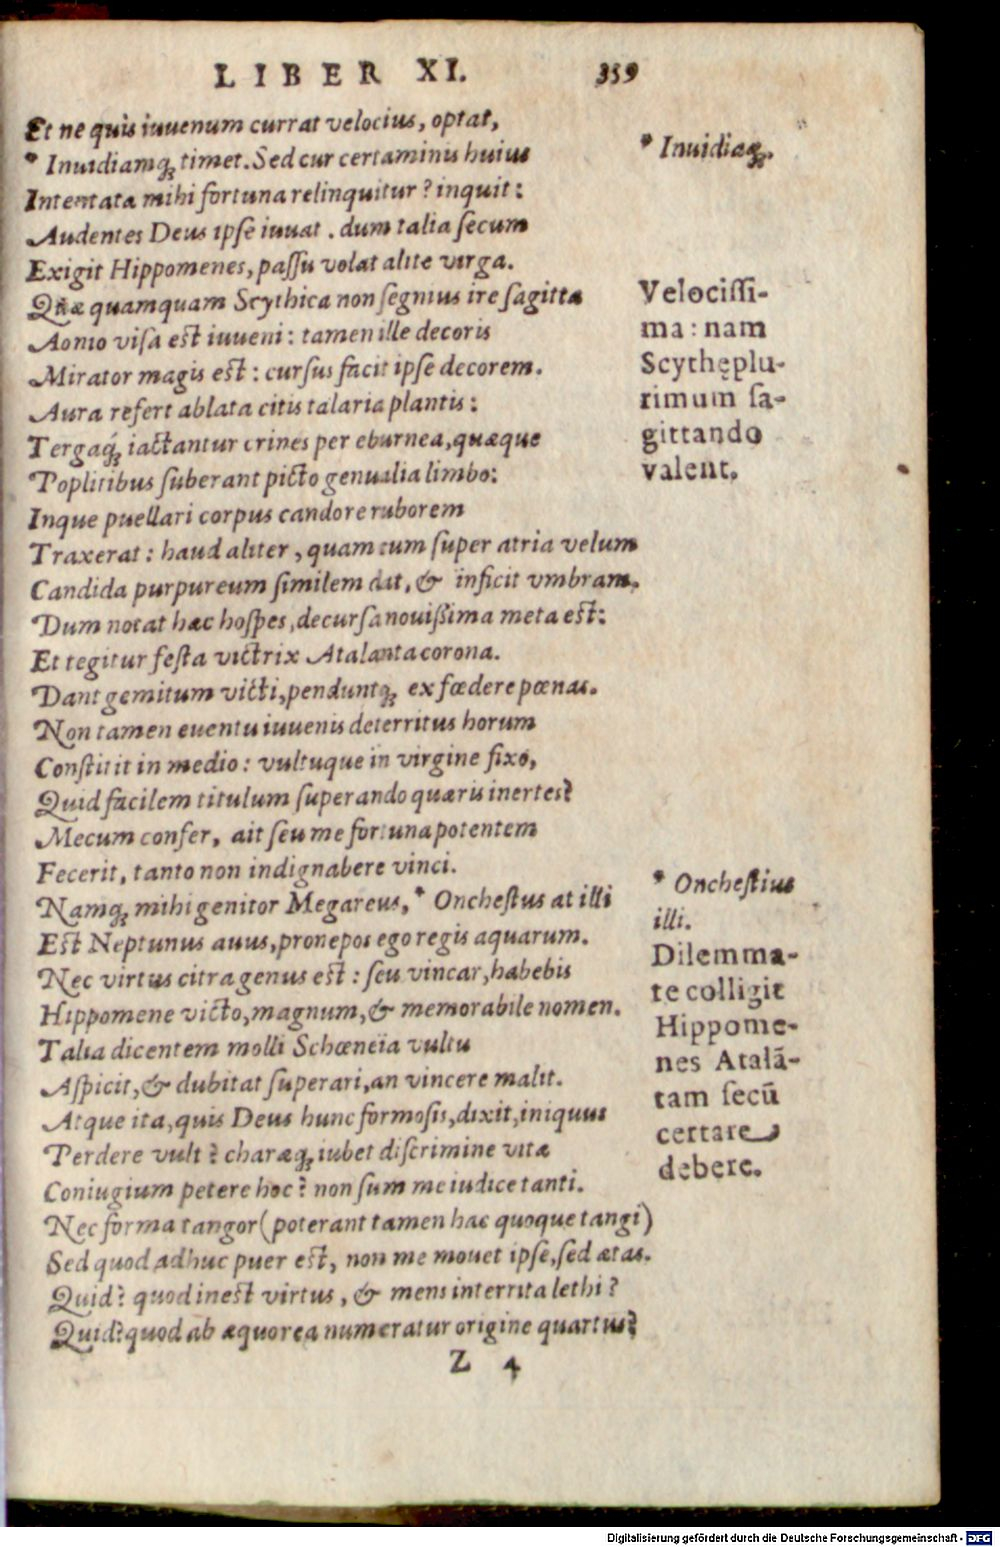 LIBER XI. 359
Et ne quis iuuenum currat velocius, optat,
* Inuidiamq; timet. Sed cur certaminis huius
* Inuidiæq;.
Intentata mihi fortuna relinquitur? inquit:
Audentes Deus ipſe iuuat. dum talia ſecum
Exigit Hippomenes, paſſu volat alite virgo.
Quæ quamquam Scythica non ſegnius ire ſagitta
Aonio viſa eſt iuueni: tamen ille decoris
Mirator magis eſt: curſus facit ipſe decorem.
Aura refert ablata citis talaria plantis:
Tergaq́; iactantur crines per eburnea, quæque
Poplitibus ſuberant picto genualia limbo:
Velociſſi-
ma: nam
Scythę plu-
rimum ſa-
gittando
valent.
Inque puellari corpus candore ruborem
Traxerat: haud aliter, quam cum ſuper atria velum
Candida purpureum ſimilem dat, & inficit vmbram.
Dum notat hæc hoſpes, decurſa nouiſſima meta eſt:
Et tegitur feſta victrix Atalanta corona.
Dant gemitum victi, penduntq; ex fœdere pœnas.
Non tamen euentu iuuenis deterritus horum
Conſtitit in medio: vultuque in virgine fixo,
Quid facilem titulum ſuperando quæris inertes?
Mecum confer, ait ſeu me fortuna potentem
Fecerit, tanto non indignabere vinci.
Namq; mihi genitor Megareus, * Oncheſtus at illi
Eſt Neptunus auus, pronepos ego regis aquarum.
Nec virtus citra genus eſt: ſeu vincar, habebis
Hippomene victo, magnum, & memorabile nomen.
Talia dicentem molli Schœneïa vultu
Aſpicit, & dubitat ſuperari, an vincere malit.
Atque ita, quis Deus hunc formoſis, dixit, iniquus
Perdere vult? charæq; iubet diſcrimine vitæ
* Oncheſtius
illi.
Dilemma-
te colligit
Hippome-
nes Atalã-
tam ſecũ
certare
debere.
Coniugium petere hoc? non ſum me iudice tanti.
Nec forma tangor (poteram tamen hac quoque tangi)
Sed quod adhuc puer eſt, non me mouet ipſe, ſed ætas.
Quid? quod ineſt virtus, & mens interrita lethi?
Quid? quod ab æquorea numeratur origine quartus?
Z 4
Digitalisierung gefördert durch die Deutsche Forschungsgemeinschaft - DFG